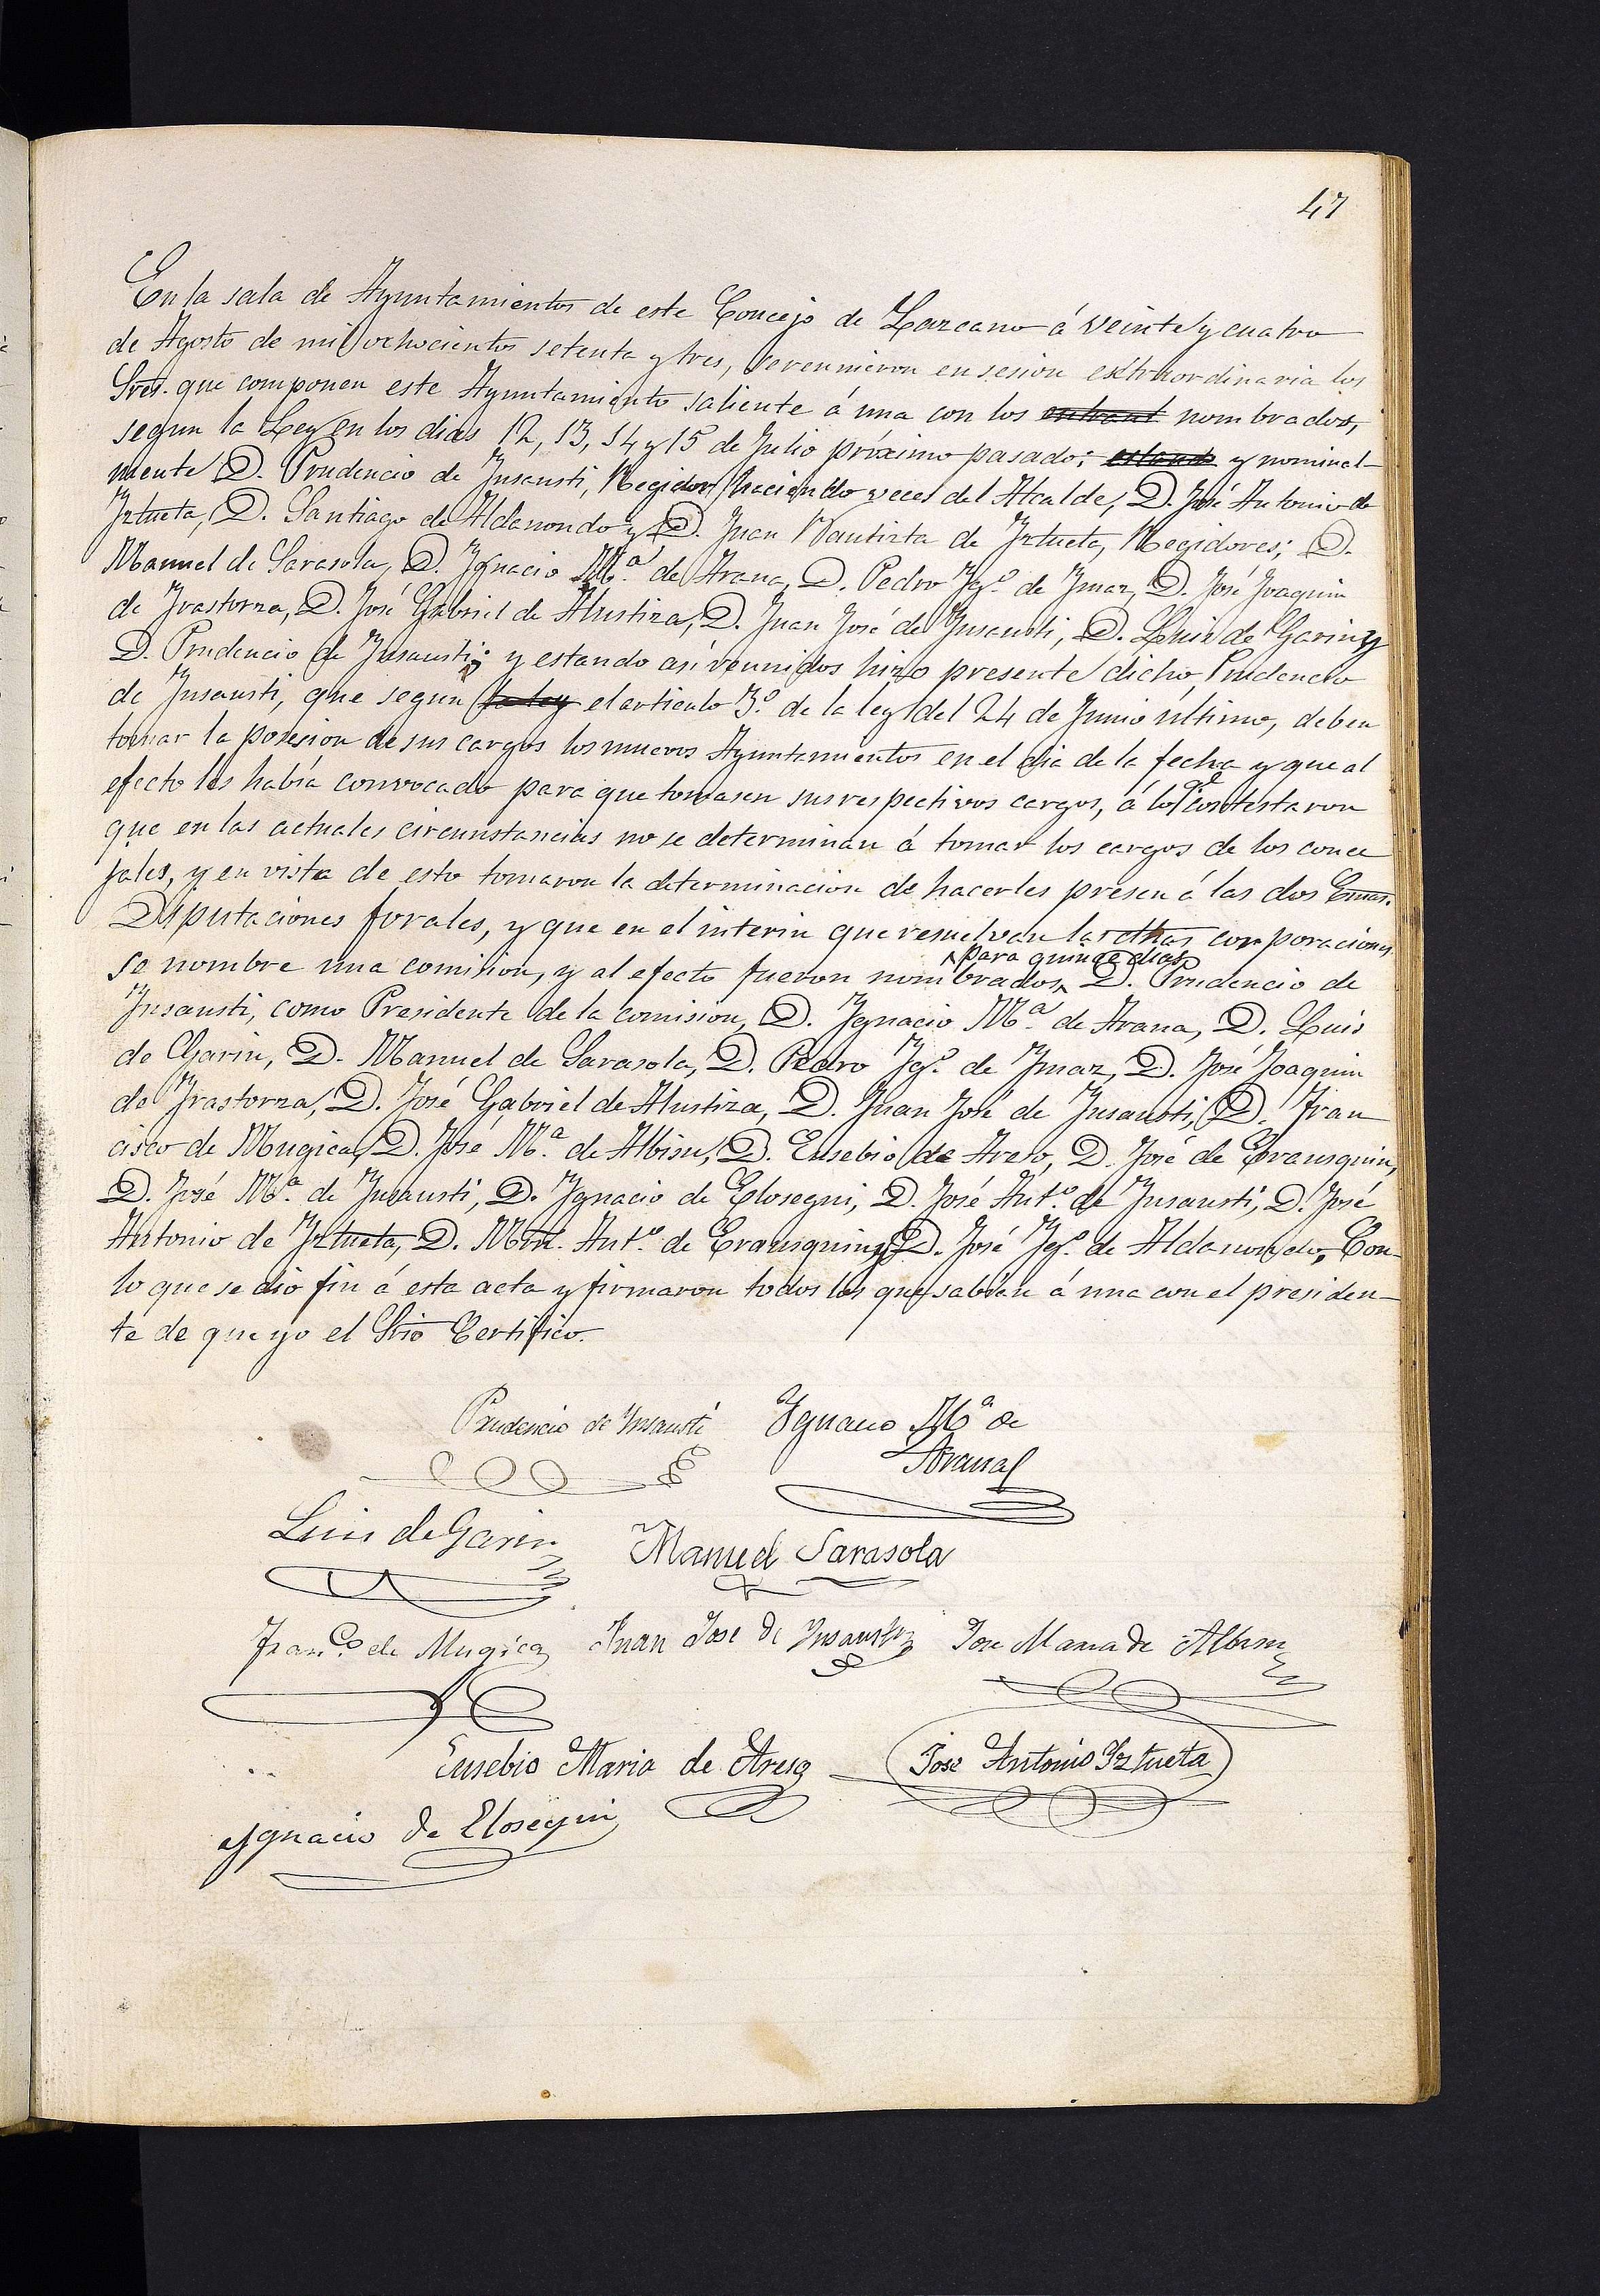 47
En la sala de Ayuntamientos de este Concejo de Lazcano á veinte y cuatro
de Agosto de mil ochocientos setenta y tres, se reunieron en sesion extraordinaria los
Sres. que componen este Ayuntamiento saliente á una con los entrant nombrados,
segun la Ley en los dias 12, 13, 14 y 15 de Julio próximo pasado; estando y nominal-
mente D. Prudencio de Insausti, Regidor haciendo veces del Alcalde, D. José Antonio de
Iztueta, D. Santiago de Aldanondo y D. Juan Bautista de Iztueta, Regidores; D.
Manuel de Sarasola, D. Ignacio Mª de Arana, D. Pedro Igº de Imaz, D. José Joaquin
de Irastorza, D. José Gabriel de Alustiza, D. Juan José de Insausti, D. Luis de Garin y
D. Prudencio de Insausti; y estando asi reunidos hizo presente dicho Prudencio
de Insausti, que segun la ley el articulo 3º de la ley del 24 de Junio último, deben
tomar la posesion de sus cargos los nuevos Ayuntamientos en el dia de la fecha y que al
efecto los había convocado para que tomasen sus respectivos cargos, á lo qe contestaron
que en las actuales circunstancias no se determinan á tomar los cargos de los conce
jales, y en vista de esto tomaron la determinacion de hacerles presen á las dos Emas.
Diputaciones forales, y que en el interin que resuelvan las dhas corporaciones
se nombre una comision, y al efecto fueron nombrados, para quince dias D. Prudencio de
Insausti, como Presidente de la comision, D. Ignacio Mª de Arana, D. Luis
de Garin, D. Manuel de Sarasola, D. Pedro Igº de Imaz, D. José Joaquin
de Irastorza, D. José Gabriel de Alustiza, D. Juan José de Insausti, D. Fran
cisco de Mugica, D. José Mª de Albisu, D. Eusebio de Areso, D. José de Erausquin,
D. José Mª de Insausti, D. Ignacio de Elosegui, D. José Antº de Insausti, D. José
Antonio de Iztueta, D. Man. Antº de Erausquin y D. José Igº de Aldanondo, Con
lo que se dió fin á esta acta y firmaron todos los que sabían á una con el presiden-
te de que yo el Srio Certifico.
Prudencio de Insausti Ygnacio Mª de
Arana
Luis de Garin Manuel Sarasola
Franco de Mugica Juan Jose de Insausti Jose Maria de Albisu
Eusebio Maria de Areso Jose Antonio Iztueta
Ygnacio de Elosegui